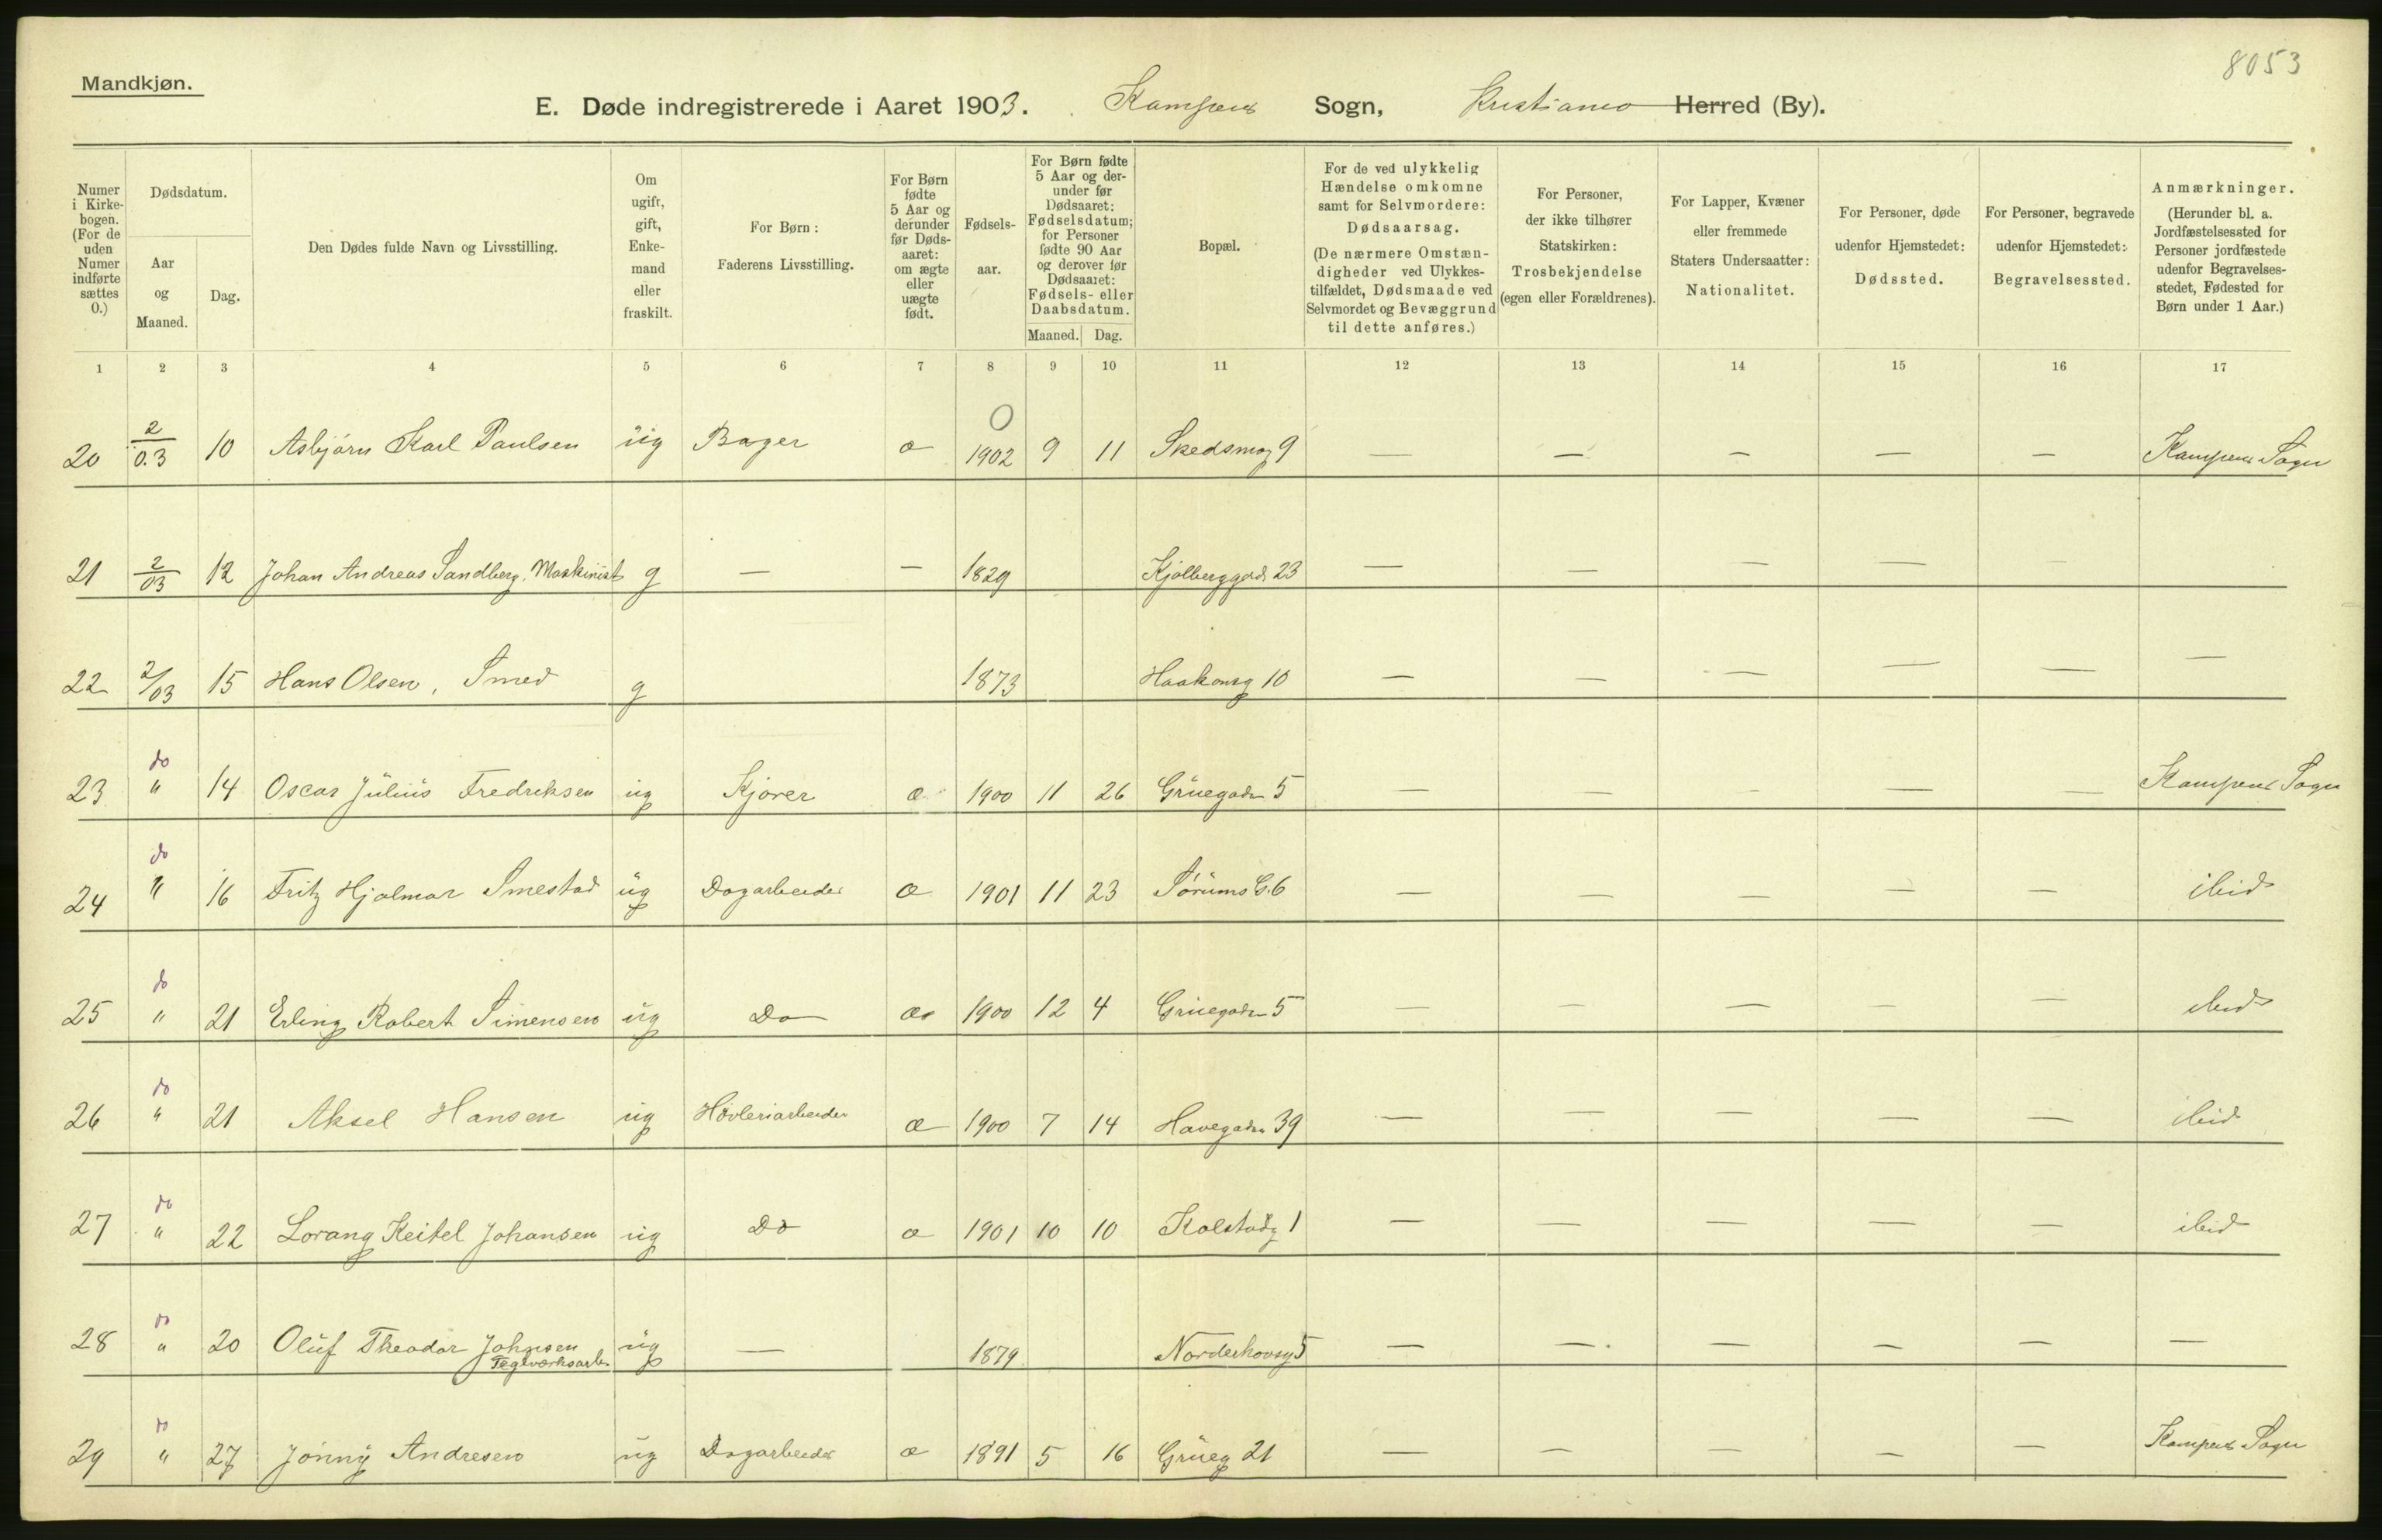 8053
Mandkjøn.
E. Døde indregistrerede i Aaret 1903. Kampens Sogn, Kristiania Herred (By).
Numer i Kirkebogen. (For de uden Numer indførte sættes 0.)
Dødsdatum.
Aar og Maaned.
Dag.
Den Dødes fulde Navn og Livsstilling.
Om ugift, gift, Enkemand eller fraskilt.
For Børn: Faderens Livsstilling.
For Børn fødte 5 Aar og derunder før Dødsaaret: om ægte eller uægte født.
Fødselsaar.
For Børn fødte 5 Aar og derunder før Dødsaaret: Fødselsdatum; for Personer fødte 90 Aar og derover før Dødsaaret: Fødsels- eller Daabsdatum.
Maaned. Dag.
Bopæl.
For de ved ulykkelig Hændelse omkomne samt for Selvmordere: Dødsaarsag. (De nærmere Omstændigheder ved Ulykkestilfældet, Dødsmaade ved Selvmordet og Bevæggrund til dette anføres.)
For Personer, der ikke tilhører Statskirken: Trosbekjendelse (egen eller Forældrenes).
For Lapper, Kvæner eller fremmede Staters Undersaatter: Nationalitet.
For Personer, døde udenfor Hjemstedet: Dødssted.
For Personer, begravede udenfor Hjemstedet: Begravelsessted.
Anmærkninger. (Herunder bl. a. Jordfæstelsessted for Personer jordfæstede udenfor Begravelsesstedet, Fødested for Børn under 1 Aar.)
1 2 3 4 5 6 7 8 9 10 11 12 13 14 15 16 17
20 2/03 10 Asbjørn Karl Paulsen ug Bager æ 0 1902 9 11 Skedsmog 9 — — — — — Kampens Sogn
21 2/03 12 Johan Andreas Sandberg, Maskinist g — — 1829 Kjølberggad 23 — — — — —
22 2/03 15 Hans Olsen, Smed g 1873 Haakonsg 10 — — — — — —
23 do " 14 Oscar Julius Fredriksen ug Kjører æ 1900 11 26 Gruegaden 5 — — — — — Kampens Sogn
24 do " 16 Fritz Hjalmar Smestad ug Dagarbeider æ 1901 11 23 Sørums G. 6 — — — — — ibid
25 do " 21 Erling Robert Simensen ug Do æ 1900 12 4 Gruegaden 5 — — — — — ibid
26 do " 21 Aksel Hansen ug Høvleriarbeider æ 1900 7 14 Havegaden 39 — — — — — ibid
27 do " 22 Lorang Keitel Johansen ug Do æ 1901 10 10 Kolstadg 1 — — — — — ibid
28 do " 20 Oluf Theodor Johnsen Teglværksarb. ug — 1879 Norderhovsg 5 — — — — — —
29 do " 27 Jonny Andresen ug Dagarbeider æ 1891 5 16 Grueg 21 — — — — — Kampens Sogn